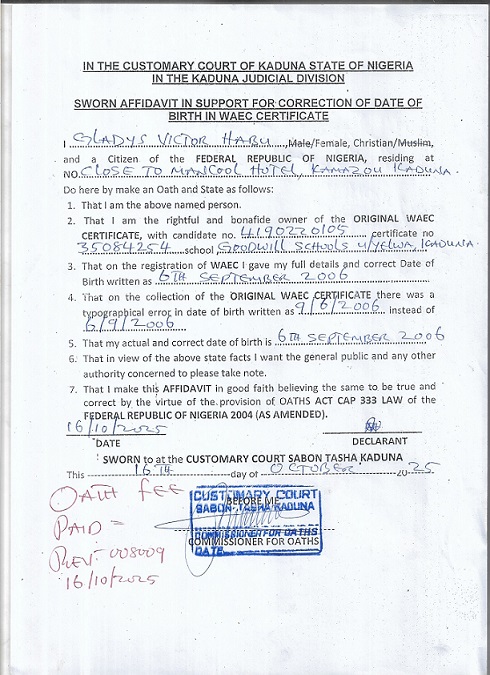 IN THE CUSTOMARY COURT OF KADUNA STATE OF NIGERIA
IN THE KADUNA JUDICIAL DIVISION
SWORN AFFIDAVIT IN SUPPORT FOR CORRECTION OF DATE OF
BIRTH IN WAEC CERTIFICATE
I GLADYS VICTOR HABU, Male/Female, Christian/Muslim,
and a Citizen of the FEDERAL REPUBLIC OF NIGERIA, residing at
NO. CLOSE TO MANCOOL HOTEL, KAMAZOU KADUNA.
Do here by make an Oath and State as follows:
1. That I am the above named person.
2. That I am the rightful and bonafide owner of the ORIGINAL WAEC
CERTIFICATE, with candidate no. 4190220105 certificate no
35084254 school, GOODWILL SCHOOLS U/YELWA, KADUNA.
3. That on the registration of WAEC I gave my full details and correct Date of
Birth written as 6TH SEPTEMBER 2006
4. That on the collection of the ORIGINAL WAEC CERTIFICATE there was a
typographical error in date of birth written as 9/6/2006 instead of
6/9/2006
5. That my actual and correct date of birth is 6TH SEPTEMBER 2006
6. That in view of the above state facts I want the general public and any other
authority concerned to please take note.
7. That I make this AFFIDAVIT in good faith believing the same to be true and
correct by the virtue of the provision of OATHS ACT CAP 333 LAW of the
FEDERAL REPUBLIC OF NIGERIA 2004 (AS AMENDED).
16/10/2025
DATE DECLARANT
SWORN to at the CUSTOMARY COURT SABON TASHA KADUNA
This 16TH day of OCTOBER 2025
OATH FEE
PAID =
REV: 008009
16/10/2025
CUSTOMARY COURT
BEFORE ME
SABON-TASHA KADUNA
COMMISSIONER FOR OATHS
COMMISSIONER FOR OATHS
DATE